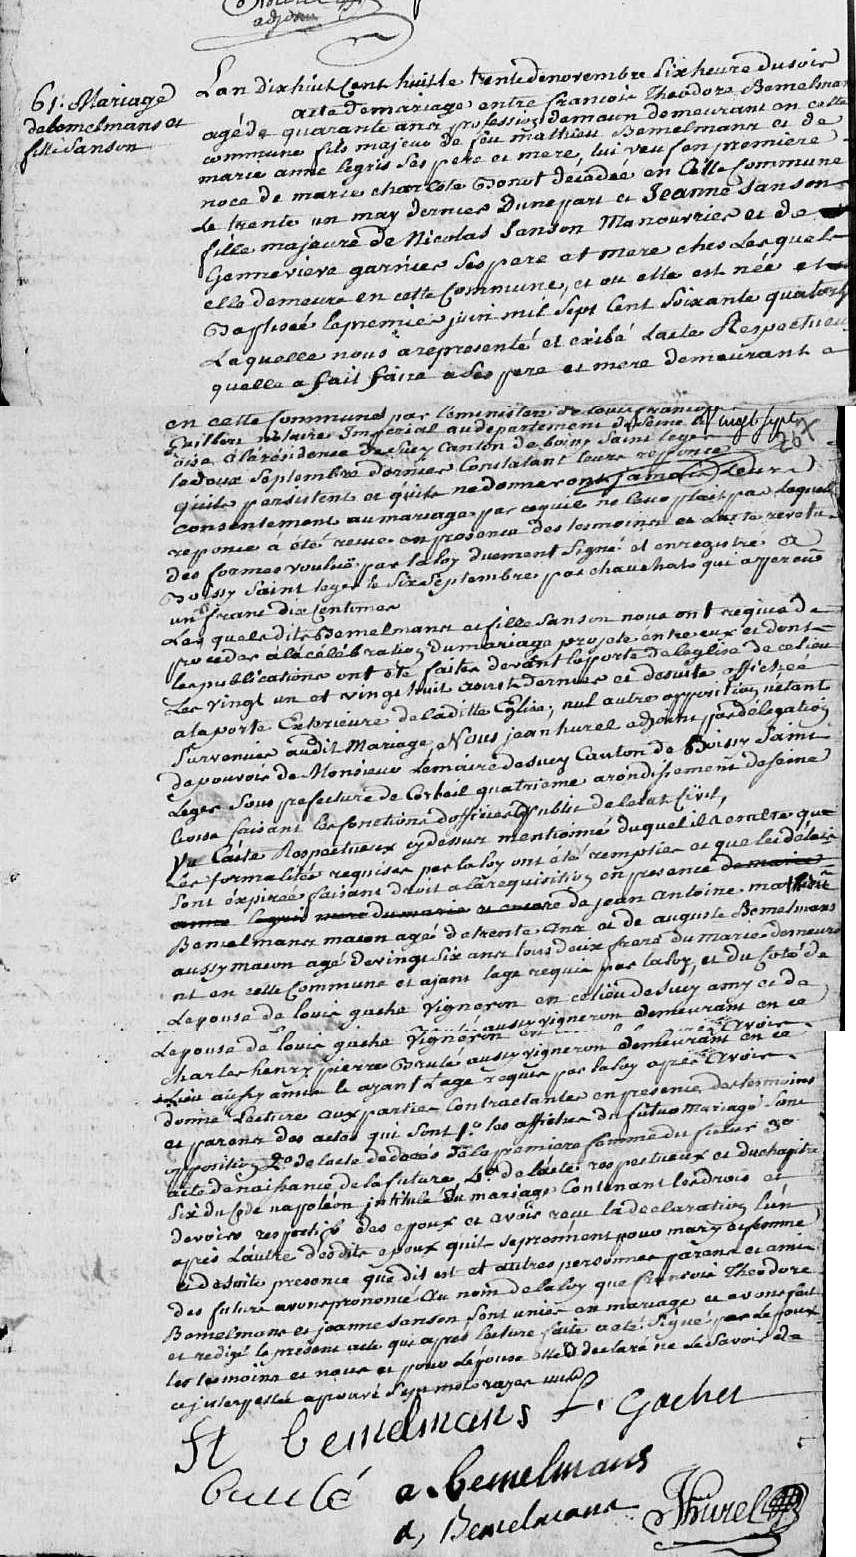 adjoint
61. Mariage
de bemelmans et
fille Sanson
Lan dix huit Cent huit le trente de novembre Six heure du soir
acte de mariage entre francois Theodore Bemelmans
agé de quarante ans profession de maçon demeurant en cette
commune fils majeur de feu mathieu Bemelmans et de
marie anne legris Ses pere et mere, lui veuf en premiere
noce de marie charlote Bonot décédée en Cette Commune
Le trente un may dernier Dune part et Jeanne Sanson
fille majeure de Nicolas Sanson Manouvrier et de
Gennevieve garnier Ses pere et mere ches Lesquels
elle demeure en cette Commune, et ou elle est née et
Baptisée le premier juin mil Sept Cent Soixante quatorze
Laquelle nous a representé et exibé Lacte Respectueux
quelle a fait faire a Ses pere et mere demeurant a
en cette Commune par le ministere de Louis francois
Guilbert notaire Imperial au departement de Seine et
oise à la residence de Sucy Canton de boissy Saint leger
le deux Septembre dernier Constatant leurs responce
quils persistent et quils ne donneront jamais Leur
Consentement au mariage par ce quil ne leur plait pas Laquelle
reponce à été recue en presence des temoins et Lacte revetu
des formes voulue par la loy duement Signé et enregistré a
Boissy Saint leger le Six Septembre par chauchat qui a percu
un franc dix Centimes
Les quels dits Bemelmans et fille Sanson nous ont requis de
proceder à la célébration du mariage projeté entre eux et dont
les publications ont été faites devant la porte de leglise de ce lieu
Les vingt un et vingt huit aoust dernier et de suite affichée
a la porte Exterieure de la ditte Eglise, nul autre opposition nétant
Survenue audit Mariage, Nous jean hurel adjoint par délégation
de pouvoir de Monsieur Lemaire de Sucy Canton de Boissy Saint
Leger Sous prefecture de Corbeil quatrieme arondissement de Seine
et oise faisant les fonctions dofficier Public de letat Civil,
Vu Lacte Respectueux cy dessus mentionné duquel il resulte que
Les formalités requises par la loy ont été remplies et que les délais
Sont expirée faisant droit a la requisition en presence de marie
anne legris mere du marie et encore de jean antoine mathieu
Bemelmans macon agé de trente ans et de auguste Bemelmans
aussy macon agé de vingt Six ans tous deux frere du marie demeura
nt en cette Commune et ajant lage requis par la loy, et du Coté de
Lepouse de louis gaché Vigneron en ce lieu de Sucy amy et de
Lepouse de louis gaché Vigneron
charles henry pierre Brulé aussy vigneron demeurant en ce
Lieu aussy amie le ajant Lage requis par la loy apres avoir
donné Lecture aux parties Contractantes en presence des temoins
et parens des actes qui sont 1.º les affiches du futur Mariage Sans
opposition 2.º de lacte de décés de la premiere femme du futur 3.º
acte de naissance de la future, 4.º de lacte respectueux et du chapitre
Six du Code napoléon intitulé Du mariage Contenant les droits et
devoirs respectifs des epoux et avoir recu la declaration lun
apres Lautre desdits epoux quils se prennent pour mary et femme
et de suite presence que dit est et autres personnes parens et amis
des futurs avons prononcé Au nom de la loy que francois Theodore
Bemelmans et jeanne Sanson Sont unies en mariage et avons fait
et redigé le present acte qui apres lecture faite a été Signé par lepoux
les temoins et nous et pour lepouse elle a declaré ne le Savoir de
ce interpellé
ft bemelmans L. Gachet
brulé a. bemelmans
a, Bemelmans JHurel